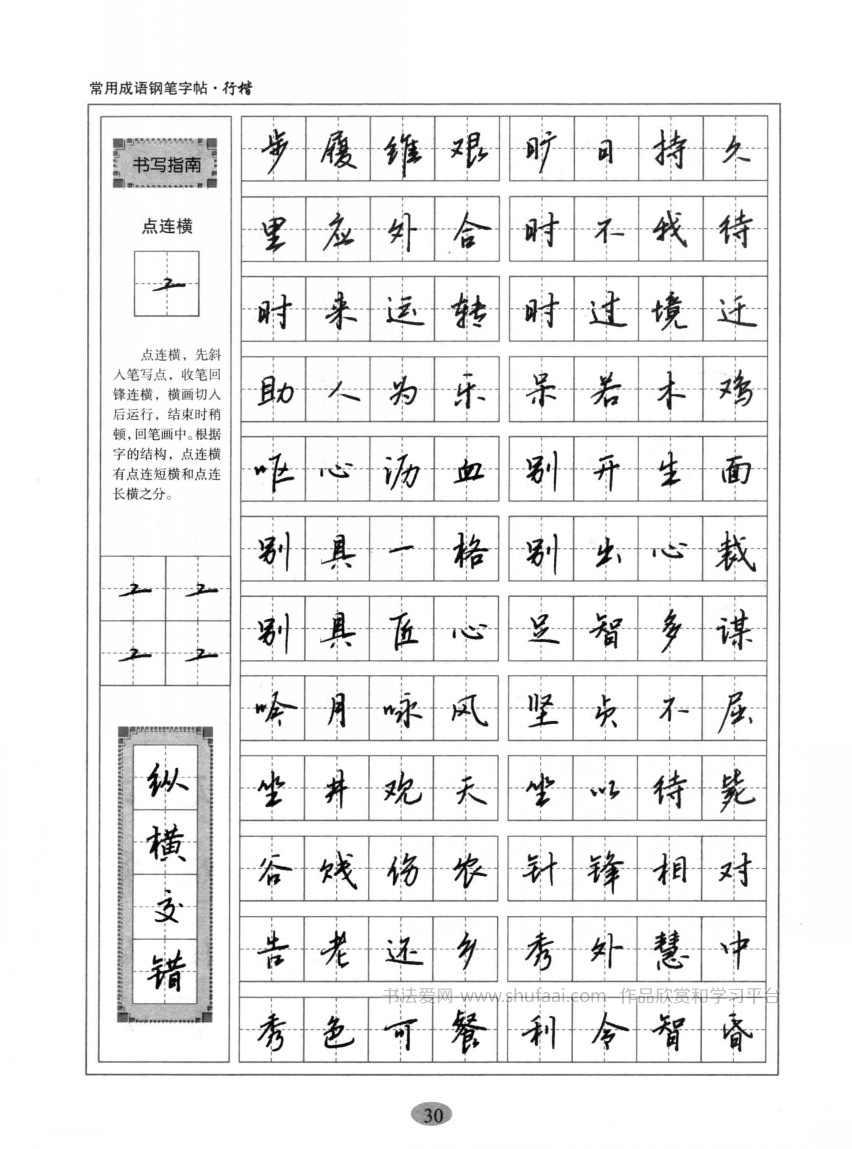 常用成语钢笔字帖·行楷
书写指南
点连横
点连横，先斜
入笔写点，收笔回
锋连横，横画切入
后运行，结束时稍
顿，回笔画中。根据
字的结构，点连横
有点连短横和点连
长横之分。
纵横交错
步履维艰 旷日持久
里应外合 时不我待
时来运转 时过境迁
助人为乐 呆若木鸡
呕心沥血 别开生面
别具一格 别出心裁
别具匠心 足智多谋
吟月咏风 坚贞不屈
坐井观天 坐以待毙
谷贱伤农 针锋相对
告老还乡 秀外慧中
秀色可餐 利令智昏
书法爱网 www.shufaai.com 作品欣赏和学习平台
30